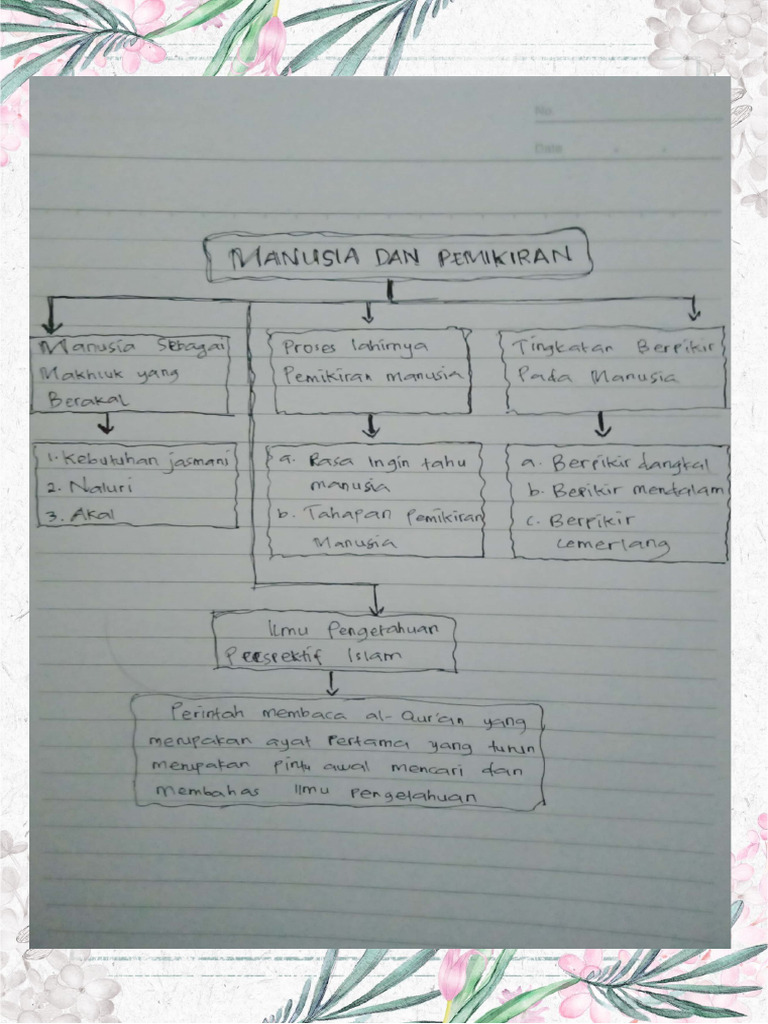 No.
Date
MANUSIA DAN PEMIKIRAN
Manusia Sebagai
Makhluk yang
Berakal
Proses lahirnya
Pemikiran manusia
Tingkatan Berpikir
Pada Manusia
1. Kebutuhan jasmani
2. Naluri
3. Akal
a. Rasa Ingin tahu
manusia
b. Tahapan pemikiran
Manusia
a. Berpikir dangkal
b. Bepikir mendalam
c. Berpikir
cemerlang
Ilmu Pengetahuan
Perspektif Islam
Perintah membaca al-Qur'an yang
merupakan ayat pertama yang turun
merupakan pintu awal mencari dan
membahas Ilmu pengetahuan